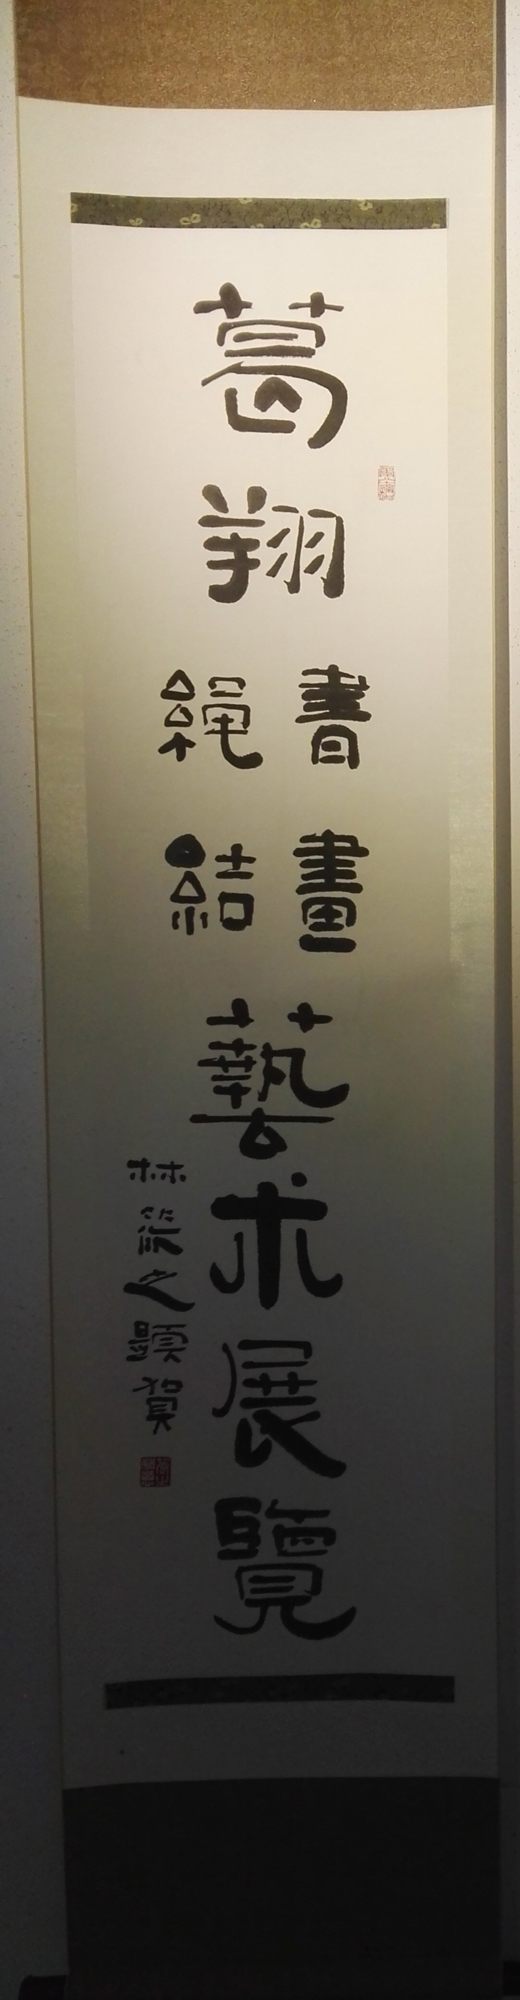 葛翔
書畫
繩結
藝术展覽
林筱之題賀